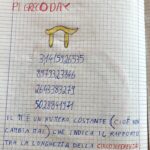 PI GRECO DAY
π
31415926535
8979323846
2643383279
5028841971
IL π È UN NUMERO COSTANTE (CIOÈ NON
CAMBIA MAI) CHE INDICA IL RAPPORTO
TRA LA LUNGHEZZA DELLA CIRCONFERENZA